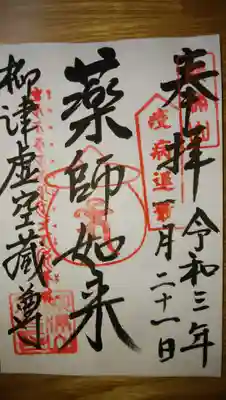 奉拝
令和三年
一月二十一日
薬師如来
柳津虚空蔵尊
疫病退散